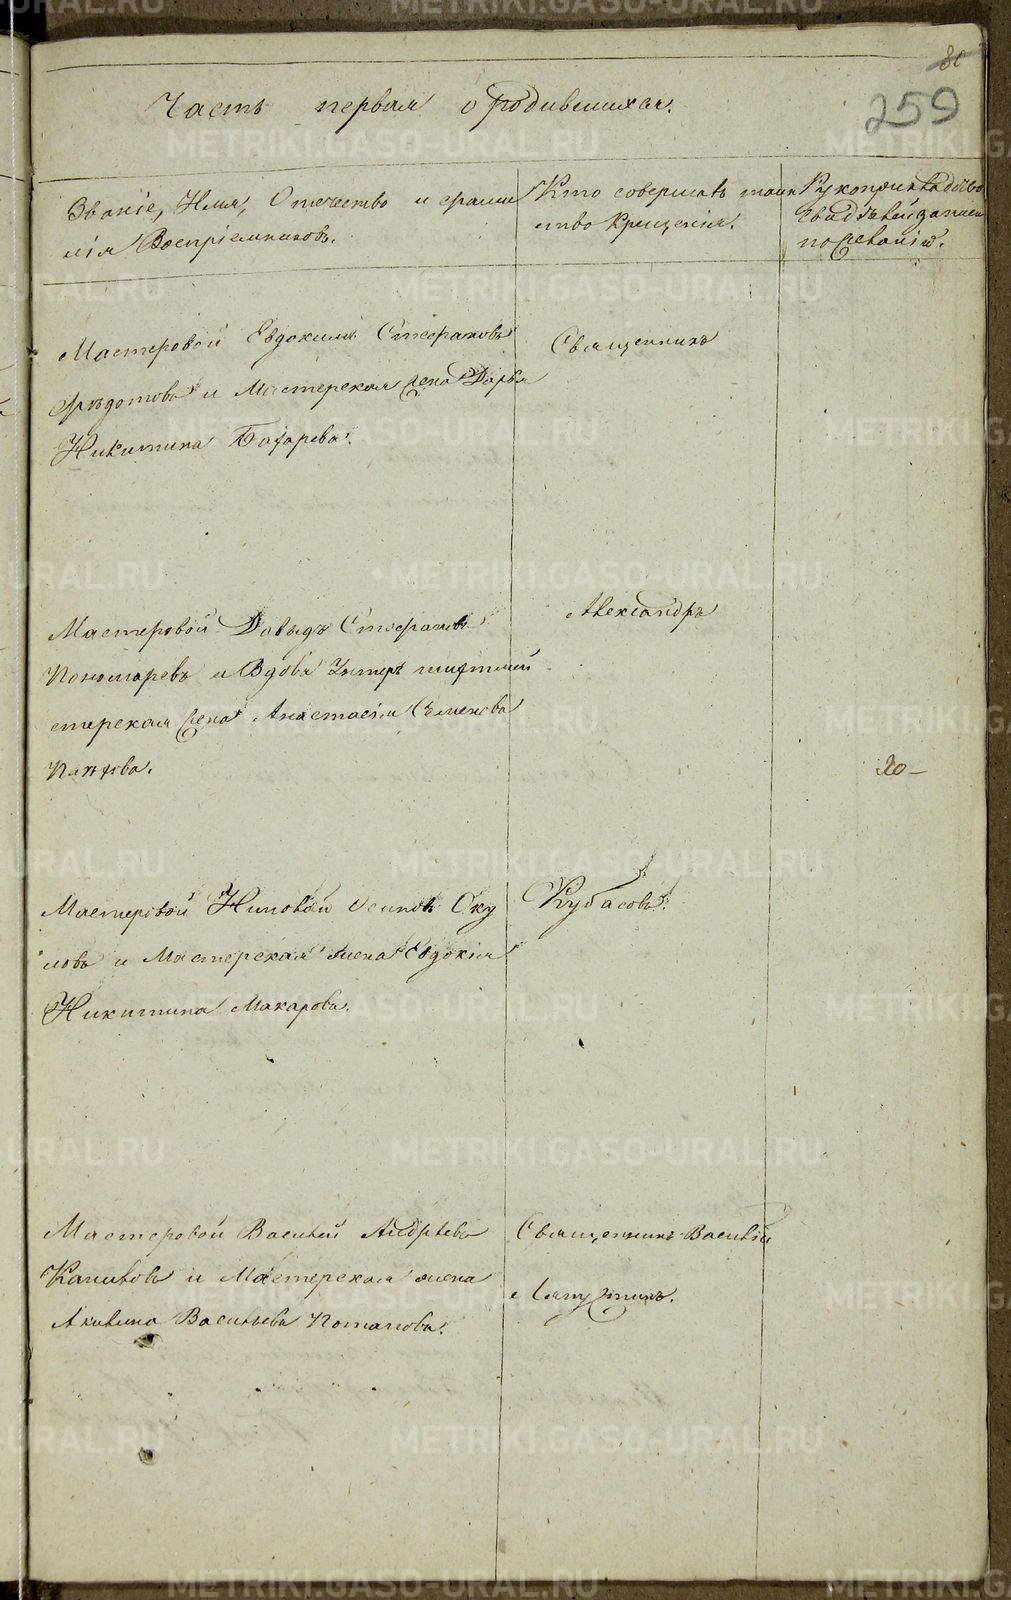 80
259
Часть первая о родившихся.
Званіе, Имя, Отечество и фами
лія Воспріемниковъ.
Кто совершалъ таин
ство Крещенія.
Рукоприкладство
свидѣтелей записи
по желанію.
Мастеровой Евдокимъ Стефановъ
Ѳедотовъ и Мастерская жена Дарья
Никитина
Священникъ
Мастеровой Давыдъ Стефановъ
Пономаревъ и Вдова Унтеръ
жена Анастасія Семенова
Александръ
20
Мастеровой Осиповъ Оку
ловъ и Мастерская жена Евдокія
Никитина Макарова.
Кубасовъ.
Мастеровой Василей Андреевъ
и Мастерская жена
Акилина Васильева Потапова.
Священникъ Василій
METRIKI.GASO-URAL.RU